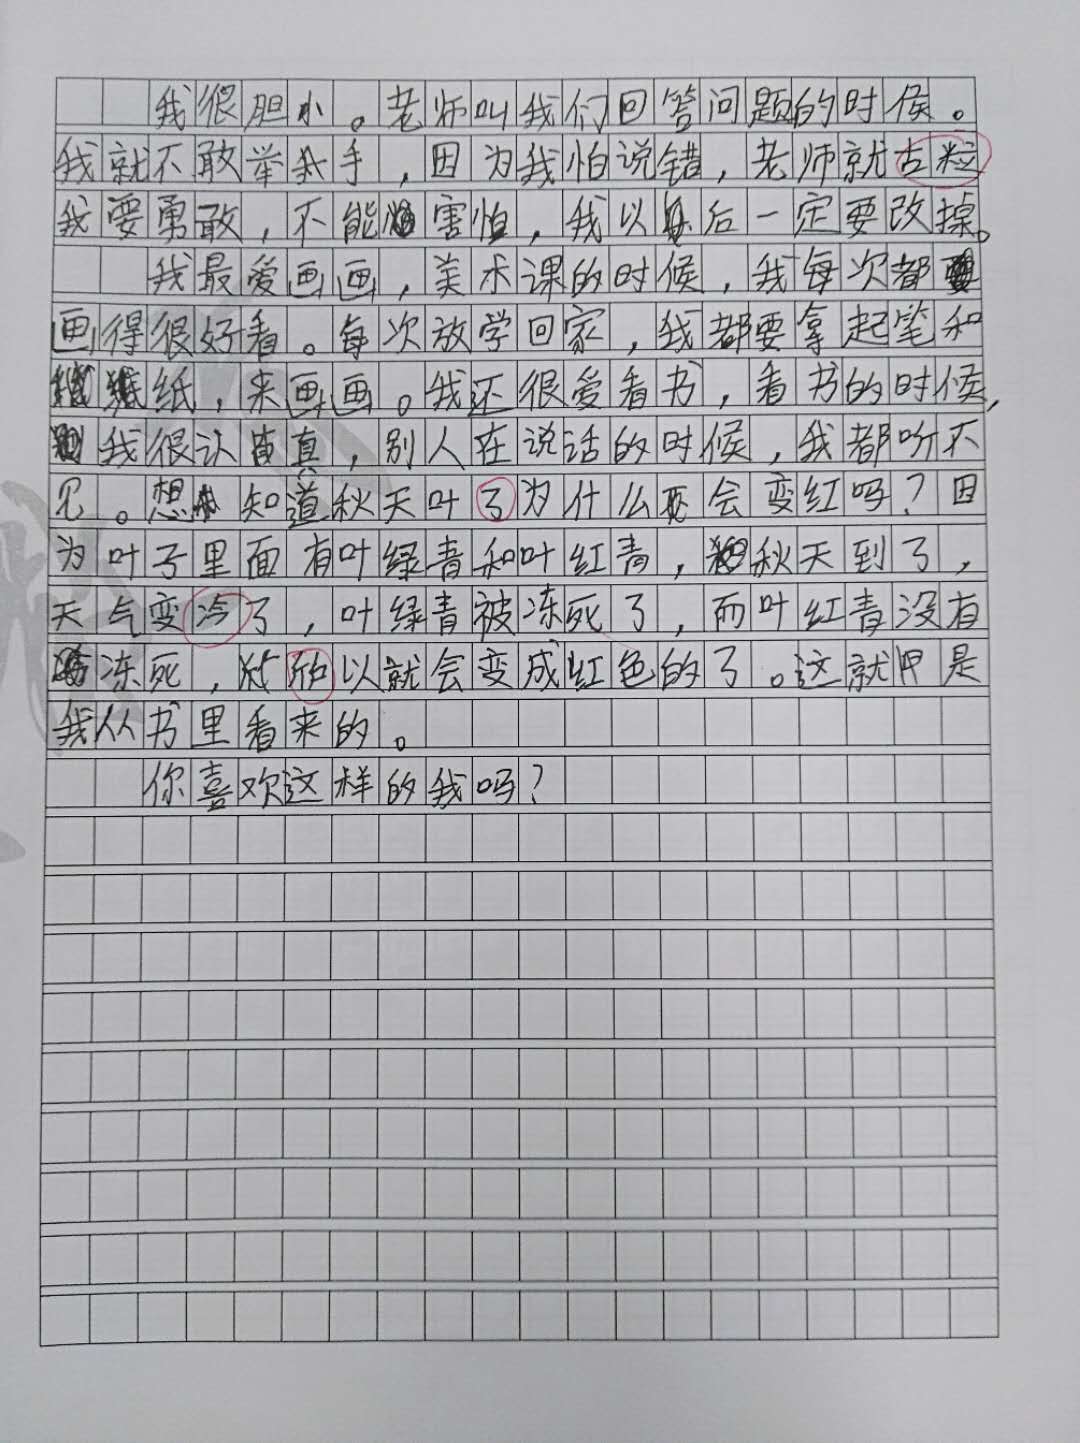 我很胆小。老师叫我们回答问题的时侯。
我就不敢举手,因为我怕说错,老师就古粒
我要勇敢,不能害怕,我以后一定要改掉。
我最爱画画,美术课的时候,我每次都
画得很好看。每次放学回家,我都要拿起笔和
纸,来画画。我还很爱看书,看书的时候,
我很认真,别人在说话的时候,我都吩不
见。想知道秋天叶了为什么会变红吗?因
为叶子里面有叶绿青和叶红青,秋天到了,
天气变冷了,叶绿青被冻死了,而叶红青没有
冻死,以就会变成红色的了。这就是
我从书里看来的。
你喜欢这样的我吗?